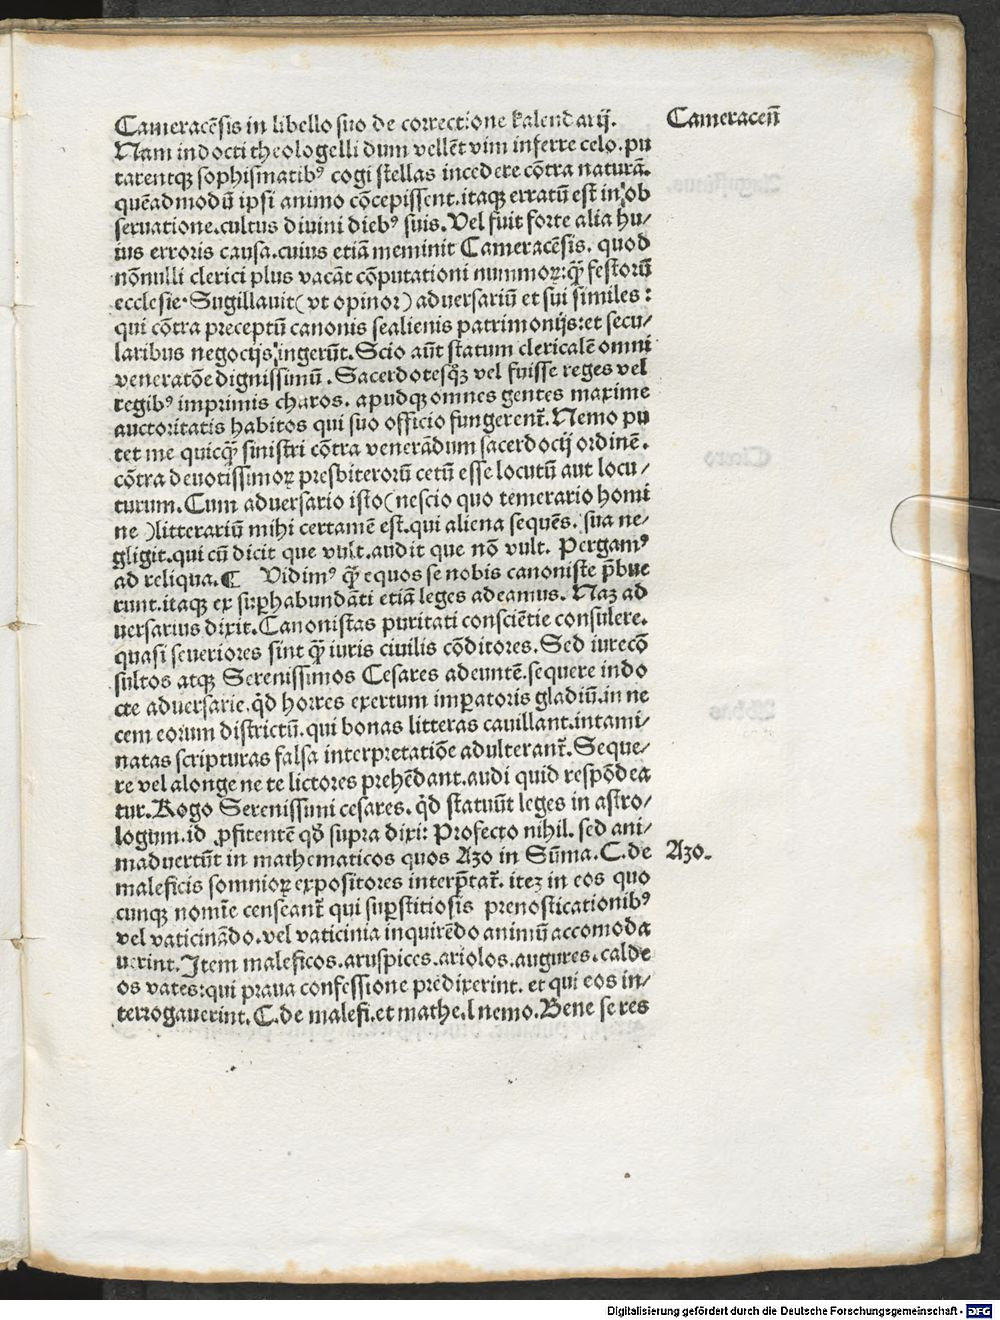 Cameracēsis in libello suo de correctione kalendarij.
Cameraceñ
Nam indocti theologelli dum vellēt vim inferre celo. pu
tarentqꝫ sophismatibꝰ cogi stellas incedere cōtra naturā.
quēadmodū ipsi animo cōcepissent. itaqꝫ erratū est in ob
seruatione. cultus diuini diebꝰ suis. Vel fuit forte alia hu⸗
ius erroris causa. cuius etiā meminit Cameracēsis. quod
nōnulli clerici plus vacāt cōputationi nummoꝝ: qꝫ̄ festorū
ecclesie. Sugillauit (vt opinor) aduersariū et sui similes:
qui cōtra preceptū canonis sealienis patrimonijs: et secu⸗
laribus negocijs ingerūt. Scio aūt statum clericalē omni
veneratōe dignissimū. Sacerdotesqꝫ vel fuisse reges vel
regibꝰ imprimis charos. apudqꝫ omnes gentes maxime
auctoritatis habitos qui suo officio fungerent᷑. Nemo pu
tet me quicqꝫ̄ sinistri cōtra venerādum sacerdocij ordinē.
cōtra deuotissimoꝝ presbiterorū cetū esse locutū aut locu⸗
turum. Cum aduersario isto (nescio quo temerario homi
ne) litterariū mihi certamē est. qui aliena sequēs. sua ne⸗
gligit. qui cū dicit que vult. audit que nō vult. Pergamꝰ
ad reliqua. ¶ Vidimꝰ qꝫ̄ equos se nobis canoniste p̄bue
runt. itaqꝫ ex suꝑhabundāti etiā leges adeamus. Naꝫ ad
uersarius dixit. Canonistas puritati consciētie consulere.
quasi seueriores sint qꝫ̄ iuris ciuilis cōditores. Sed iurecō
sultos atqꝫ Serenissimos Cesares adeuntē. sequere indo
cte aduersarie. qd̄ horres exertum imꝑatoris gladiū. in ne
cem eorum districtū. qui bonas litteras cauillant. intami⸗
natas scripturas falsa interpretatiōe adulterant᷑. Seque⸗
re vel alonge ne te lictores prehēdant. audi quid respōdea
tur. Rogo Serenissimi cesares. qd̄ statuūt leges in astro⸗
logum. id ꝓfitentē qd̄ supra dixi: Profecto nihil. sed ani⸗
maduertūt in mathematicos quos Azo in Sūma. C. de
Azo.
maleficis somnioꝝ expositores interp̄tat᷑. iteꝫ in eos quo
cunqꝫ nomīe censeant᷑ qui suꝑstitiosis prenosticationibꝰ
vel vaticinādo. vel vaticinia inquirēdo animū accomoda
uerint. Item maleficos. aruspices. ariolos. augures. calde
os vates: qui praua confessione predixerint. et qui eos in⸗
terrogauerint. C. de malefi. et mathe. l nemo. Bene se res
Digitalisierung gefördert durch die Deutsche Forschungsgemeinschaft - DFG